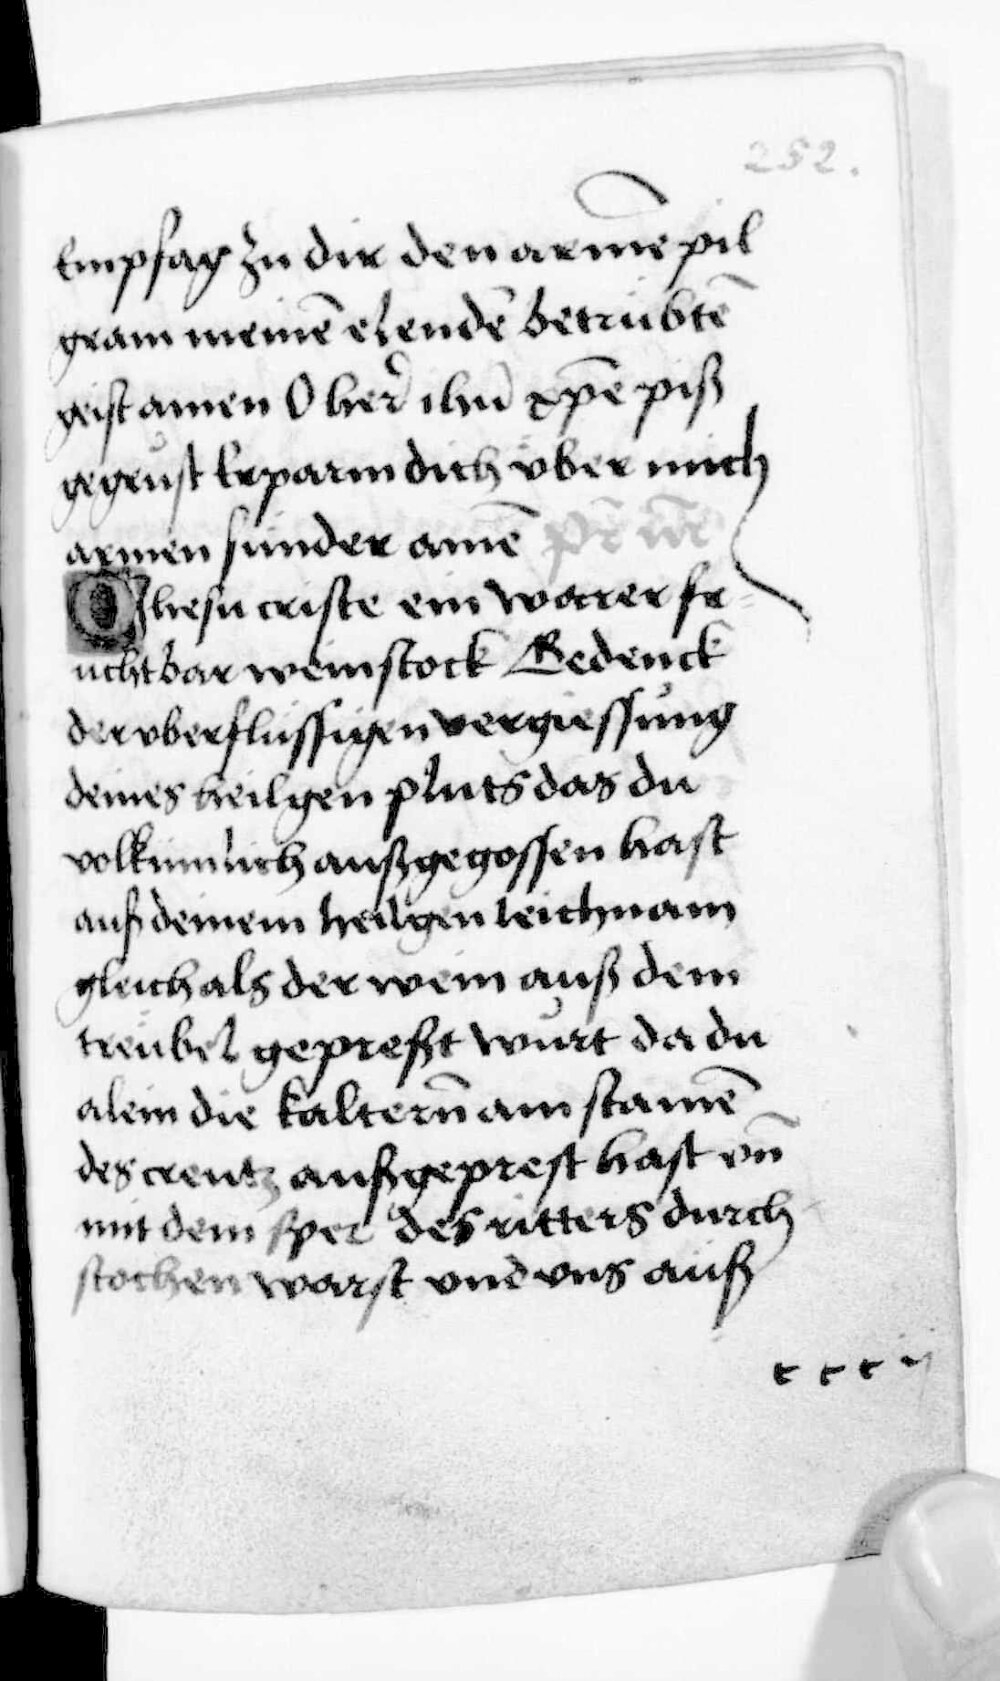 252.
Empfag zu dir den armē pil
gram meinē elendē betrubtē
geist amen O her ihū xp̄e piß
gegrust Erparm dich vber mich
armen sunder amē pr̄ nr̄
O Jhesu criste ein warer fr-
uchtbar weinstock Gedenck
der vberflussigen vergiessung
deines heilgen pluts das du
volkumlich außgegossen hast
auß deinem heilgen leichnam
gleich als der wein auß dem
treubel geprest wurt da du
alein die kalterñ am stamē
des creutz außgeprest hast vñ
mit dem sper des ritters durch
stochen warst vnd vns auß